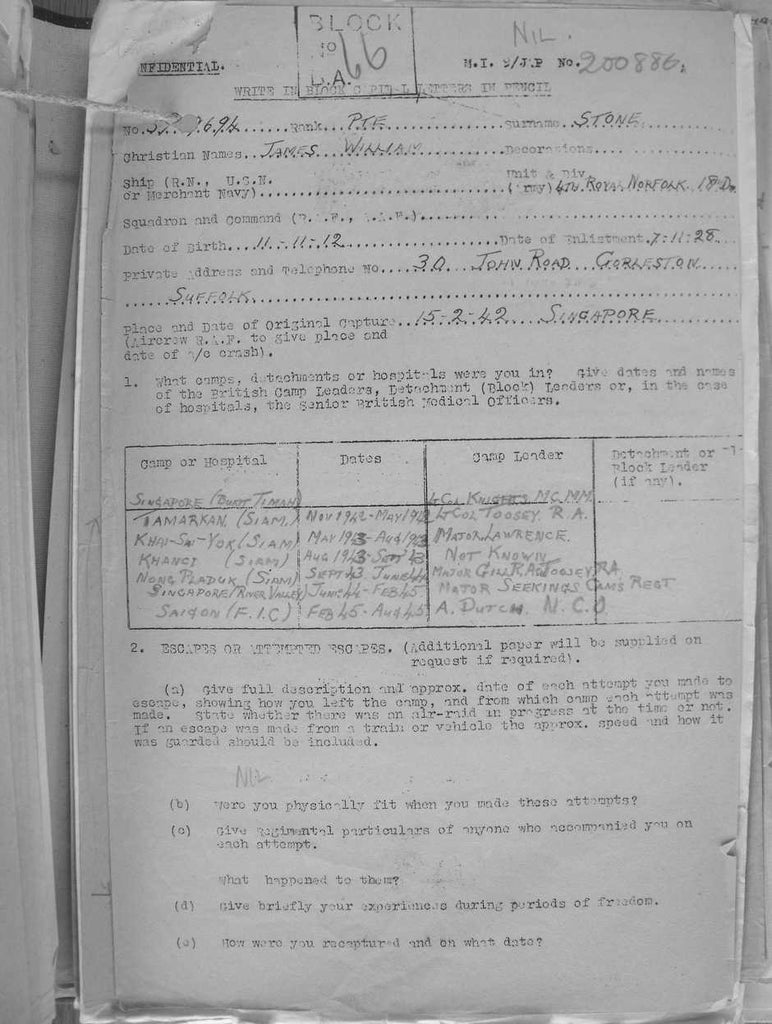 BLOCK
to 66
L.A.
NIL.
NFIDENTIAL.
M.I. 9/JAP No. 200886.
WRITE IN BLOCK CAPITAL LETTERS IN PENCIL
No. Rank... PTE ... Surname... STONE
Christian Names... JAMES WILLIAM ... Decorations...
Ship (R.N., U.S.N. or Merchant Navy)...
Unit & Div. (Army) 4th. ROYAL NORFOLK. 18 D.
Squadron and Command (R.A.F., A.A.F.)...
Date of Birth... 11.-11-12 ... Date of Enlistment. 7:11:28
Private Address and Telephone No. ... 30 JOHN ROAD GORLESTON
SUFFOLK
Place and Date of Original Capture... 15-2-42 SINGAPORE
(Aircrew R.A.F. to give place and
date of a/c crash).
1. What camps, detachments or hospitals were you in? Give dates and names
of the British Camp Leaders, Detachment (Block) Leaders or, in the case
of hospitals, the Senior British Medical Officers.
Camp or Hospital Dates Camp Leader Detachment or
Block Leader
(if any).
SINGAPORE (BUKIT TIMAH) LT COL KNIGHTS MC.MM.
TAMARKAN. (SIAM.) NOV 1942-MAY 1943 LT COL TOOSEY. R.A.
KHAI-SAI-YOK (SIAM) MAY 1943-AUG 1943 MAJOR LAWRENCE.
(SIAM) AUG 1943-SEPT 43 NOT KNOWN
NONG PLADUK (SIAM) SEPT 43 JUNE 44 MAJOR GILL R.A. TOOSEY RA.
SINGAPORE (RIVER VALLEY) JUNE 44-FEB 45 MAJOR SEEKINGS CAMS REGT
SAIGON (F.I.C) FEB 45-AUG 45 A. DUTCH. N.C.O
2. ESCAPES OR ATTEMPTED ESCAPES. (Additional paper will be supplied on
request if required).
(a) Give full description and approx. date of each attempt you made to
escape, showing how you left the camp, and from which camp each attempt was
made. State whether there was an air-raid in progress at the time or not.
If an escape was made from a train or vehicle the approx. speed and how it
was guarded should be included.
NIL
(b) Were you physically fit when you made these attempts?
(c) Give Regimental particulars of anyone who accompanied you on
each attempt.
What happened to them?
(d) Give briefly your experiences during periods of freedom.
(e) How were you recaptured and on what date?